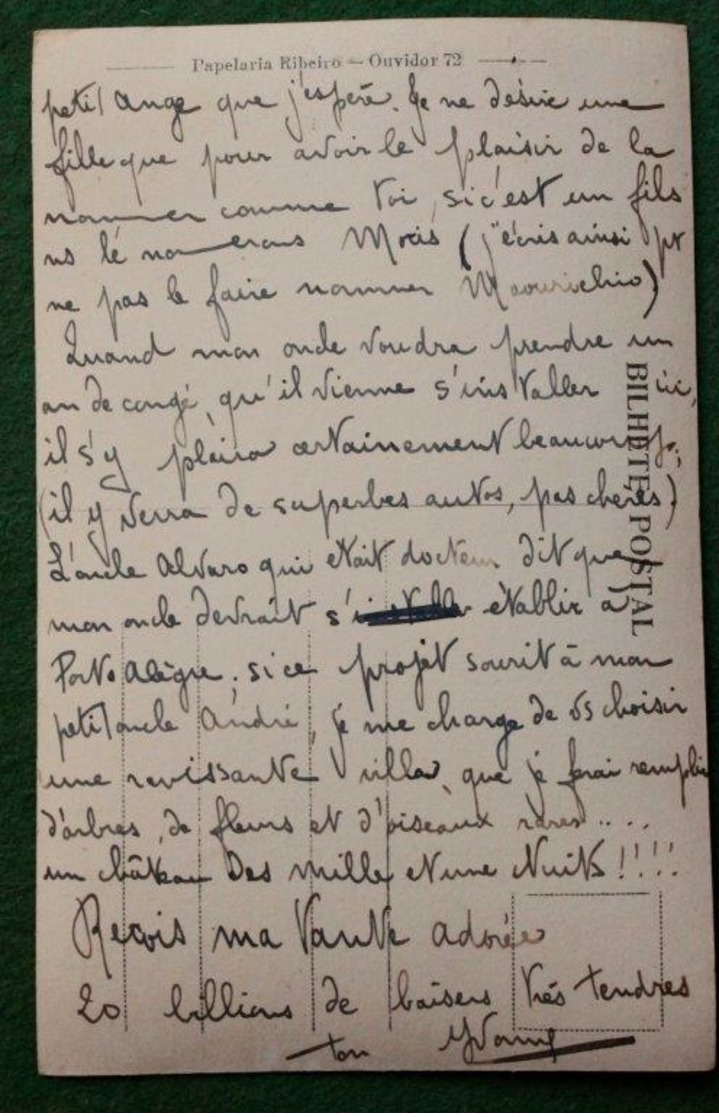 Papelaria Ribeiro — Ouvidor 72
petit Ange que j'espère. Je ne désire une
fille que pour avoir le plaisir de la
nommer comme toi, si c'est un fils
ns le nommerons Moris (j'écris ainsi pr
ne pas le faire nommer Maourichio)
Quand mon oncle voudra prendre un
an de congé, qu'il vienne s'installer ici,
il s'y plaira certainement beaucoup;
(il y verra de superbes autos, pas chères)
L'oncle Alvaro qui était docteur dit que
mon oncle devrait s' établir à
Porto Alègre; si ce projet sourit à mon
petit oncle André, je me charge de vs choisir
une ravissante villa, que je ferai remplir
d'arbres, de fleurs et d'oiseaux rares....
un château des mille et une Nuits!!!!
Reçois ma Tante adorée
20 billions de baisers très tendres
ton Yvonne
BILHETE POSTAL